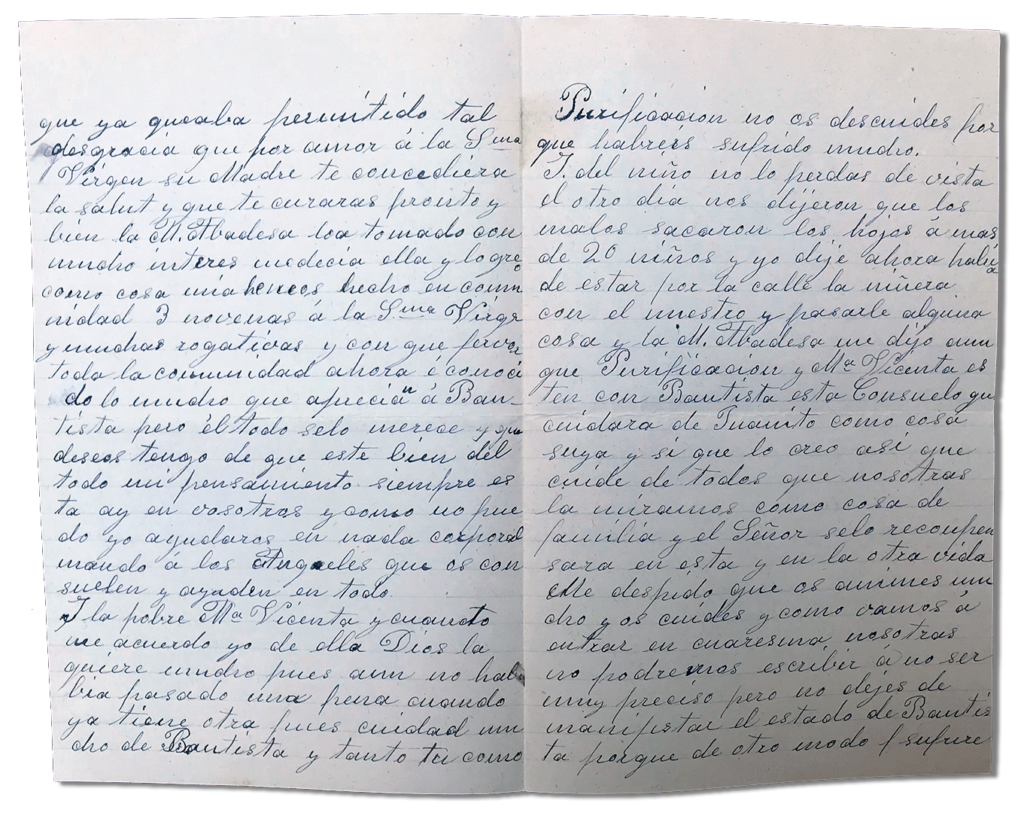 que ya queaba permitido tal
desgracia que por amor á la Sma
Vírgen su Madre te concediera
la salut y que te curaras pronto y
bien la M. Abadesa loá tomado con
mucho interes medecia ella y logre
como cosa mia hemos hecho en comu
nidad 3 novenas á la Sma Vírge
y muchas rogativas y con que fervor
toda la comunidad ahora é conoci
do lo mucho que aprecian á Bau-
tista pero él todo selo merece y que
deseos tengo de que este bien del
todo mi pensamiento siempre es
ta ay en vosotras y como no pue
do yo ayudaros en nada corporal
mando á los Angeles que os con
suelen y ayuden en todo.
Y la pobre Ma Vicenta y cuando
me acuerdo yo de ella Dios la
quiere mucho pues aun no hab
bia pasado una pena cuando
ya tiene otra pues cuidad mu
cho de Bautista y tanto tu como
Purificacion no os descuides por
que habreis sufrido mucho.
Y. del niño no lo perdas de vista
el otro dia nos dijeron que los
malos sacaron los hojos á mas
de 20 niños y yo dije ahora habia
de estar por la calle la niñera
con el nuestro y pasarle alguna
cosa y la M. Abadesa me dijo aun
que Purificacion y Ma Vicenta es
ten con Bautista esta Consuelo qu
cuidara de Juanito como cosa
suya y si que lo creo asi que
cuide de todos que nosotras
la miramos como cosa de
familia y el Señor selo recompen
sara en esta y en la otra vida
Me despido que os animes mu
cho y os cuides y como vamos á
entrar en cuaresma, nosotras
no podremos escribir á no ser
muy preciso pero no dejes de
manifestar el estado de Bautis
ta porque de otro modo sufrire